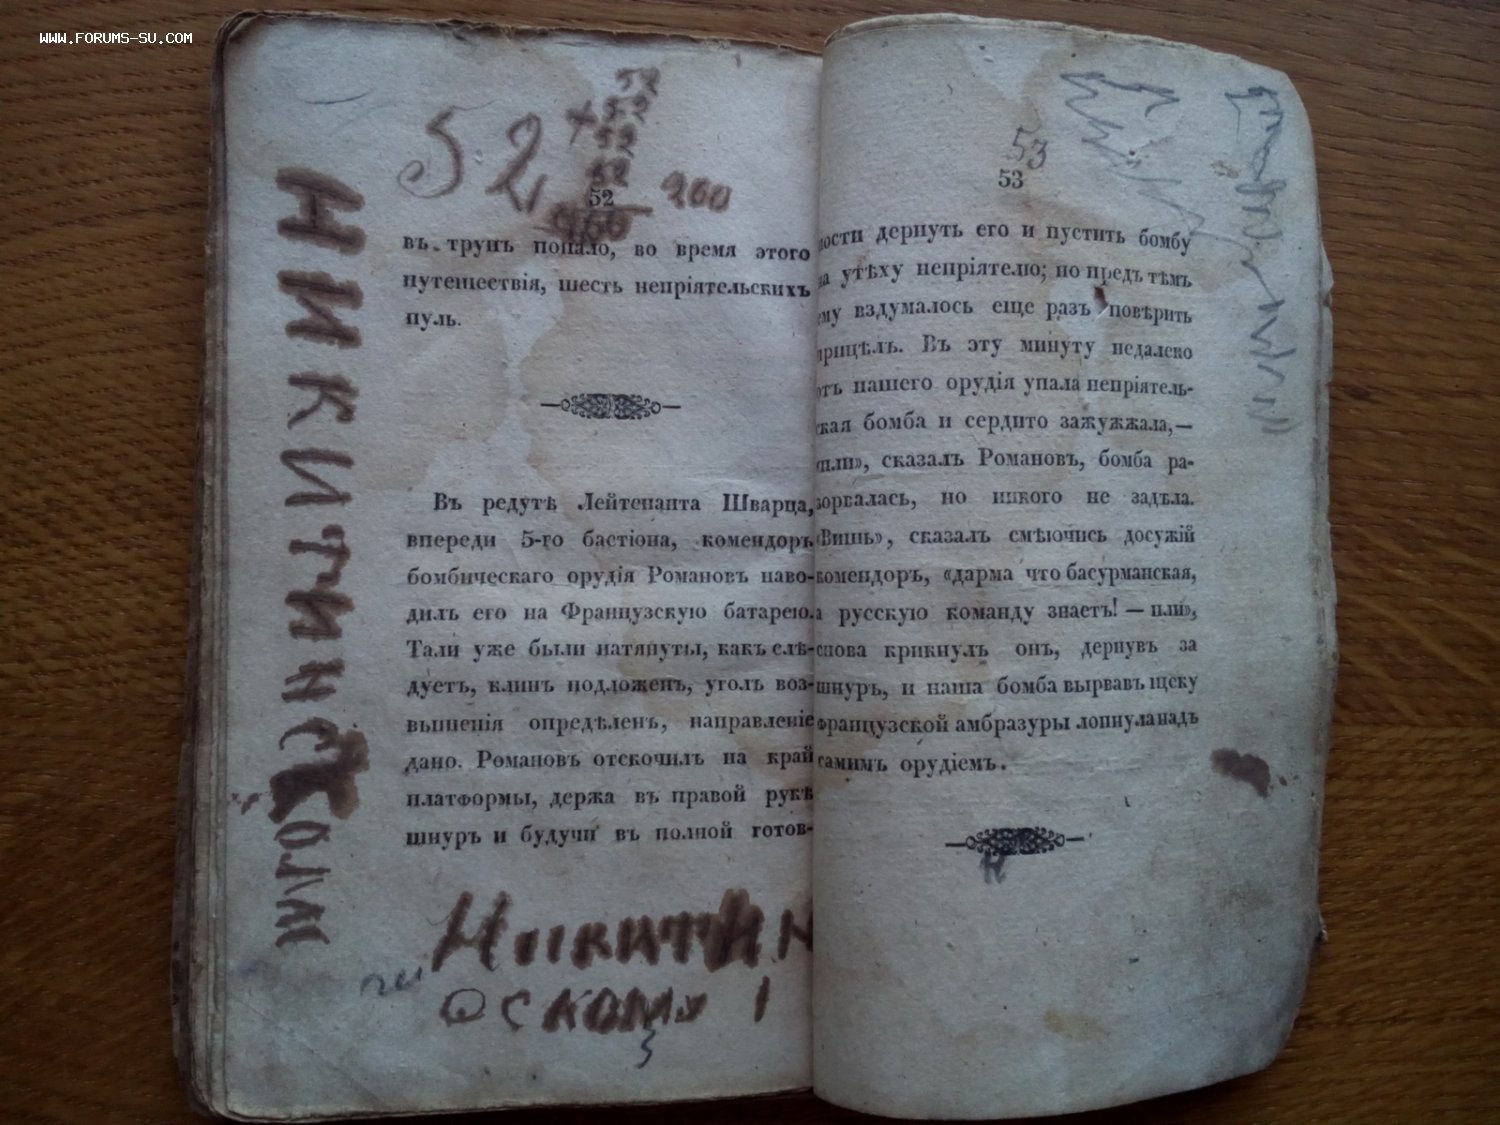 WWW.FORUMS-SU.COM
52
52
+52
52
52
260
52
въ трупъ попало, во время этого
путешествія, шесть непріятельскихъ
пуль.
Въ редутѣ Лейтенанта Шварца,
впереди 5-го бастіона, комендоръ
бомбическаго орудія Романовъ наво-
дилъ его на Французскую батарею.
Тали уже были натянуты, какъ слѣ-
дуетъ, клинъ подложенъ, уголъ воз-
вышенія опредѣленъ, направленіе
дано. Романовъ отскочилъ на край
платформы, держа въ правой рукѣ
шнуръ и будучи въ полной готов-
НИКИТИНСКОМУ
Никитин
оскому 1
53
53
ности дернуть его и пустить бомбу
на утѣху непріятелю; но предъ тѣмъ
ему вздумалось еще разъ повѣрить
прицѣлъ. Въ эту минуту недалеко
отъ нашего орудія упала непріятель-
ская бомба и сердито зажужжала,—
«пли», сказалъ Романовъ, бомба ра-
зорвалась, но никого не задѣла.
«Вишь», сказалъ смѣючись досужій
комендоръ, «дарма что басурманская,
а русскую команду знаетъ! — пли»,
снова крикнулъ онъ, дернувъ за
шнуръ, и наша бомба вырвавъ щеку
Французской амбразуры лопнула надъ
самимъ орудіемъ.